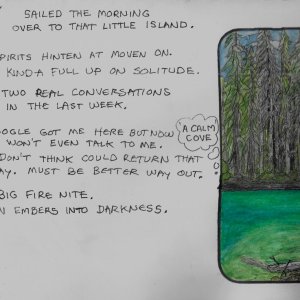 SAILED THE MORNING
OVER TO THAT LITTLE ISLAND.
SPIRITS HINTEN AT MOVEN ON.
KINDA FULL UP ON SOLITUDE.
TWO REAL CONVERSATIONS
IN THE LAST WEEK.
OOGLE GOT ME HERE BUT NOW
WON'T EVEN TALK TO ME.
DON'T THINK COULD RETURN THAT
AY. MUST BE BETTER WAY OUT.
BIG FIRE NITE.
EMBERS INTO DARKNESS.
A CALM
COVE